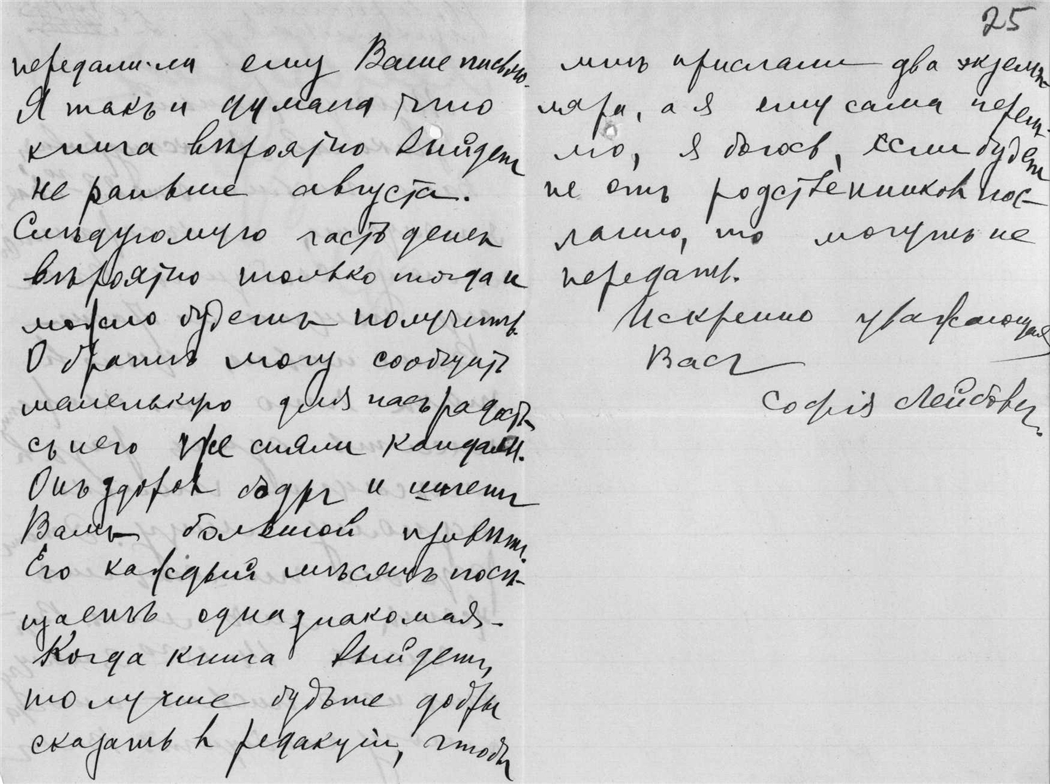 25
передали-ли ему Ваше письмо.
Я такъ и думала что
книга вѣроятно выйдет
не раньше августа.
Слѣдуюмую часть денег
вѣроятно только тогда и
можно будетъ получить.
О братѣ могу сообщить
маленькую для насъ радость
съ него уже сняли кандалы.
Онъ здоров бодръ и шлетъ
Вамъ большой привѣтъ.
Его каждый мѣсяцъ посѣ-
щаетъ одна знакомая.
Когда книга выйдетъ,
то лучше будьте добры
сказать в редакціи, чтобы
мнѣ прислали два экземп-
ляра, а я ему сама переш-
лю, я боюсь, если будет
не отъ родственников пос-
лано, то могутъ не
передать.
Искренно уважающая
Васъ
Софія Лейбовиц